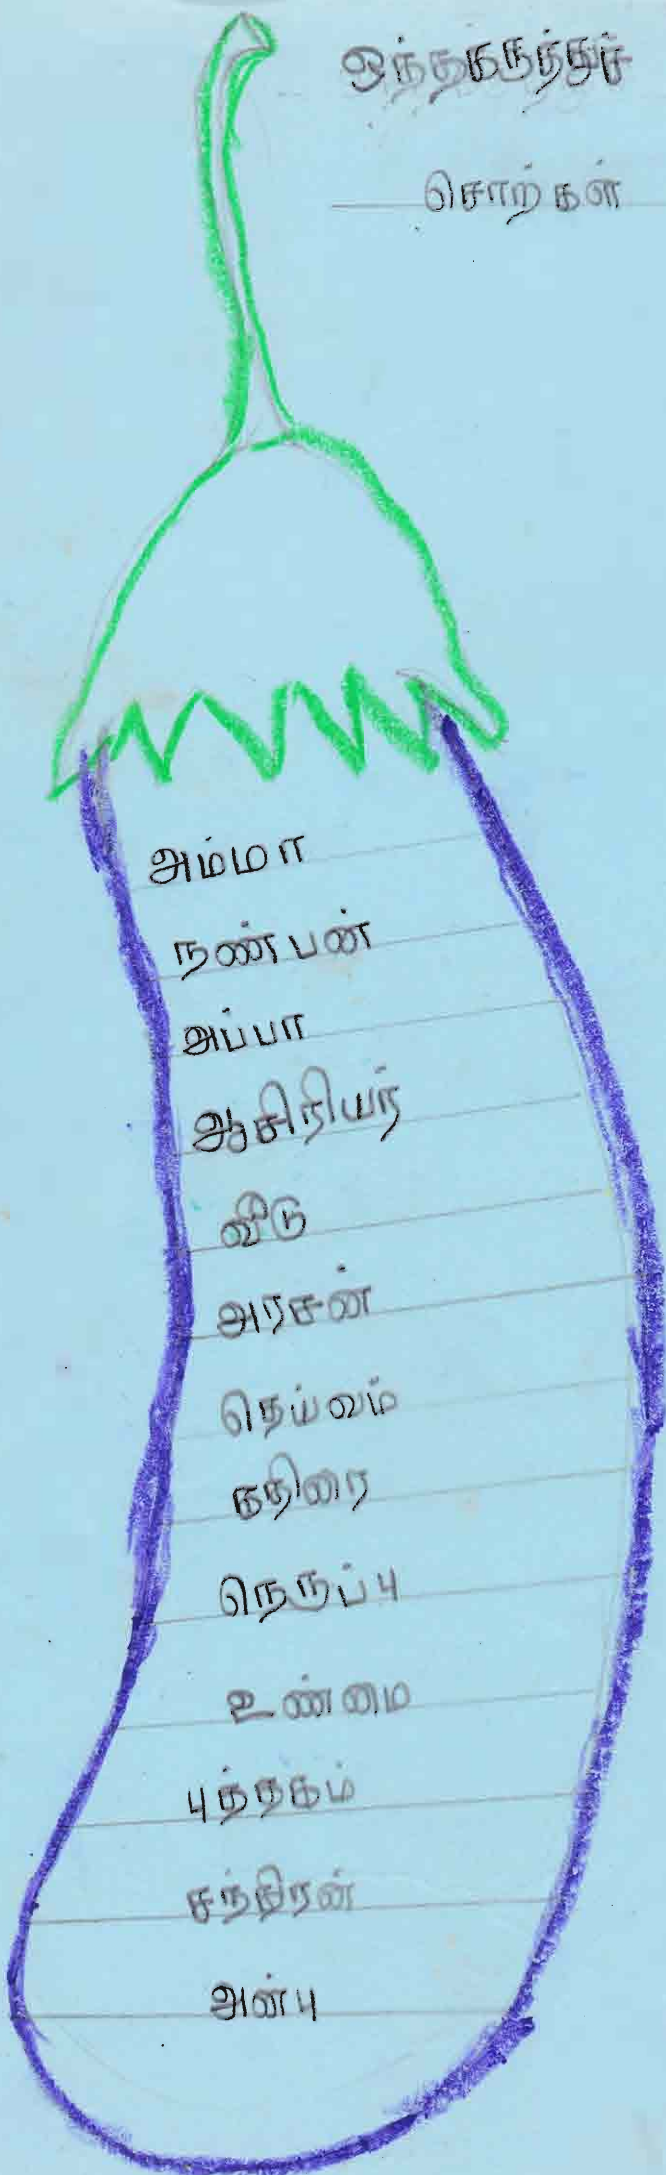 ஒந்தகருந்துச்
சொற்கள்
அம்மா
நண்பன்
அப்பா
ஆசிரியர்
வீடு
அரசன்
தெய்வம்
குதிரை
நெருப்பு
உண்மை
புத்தகம்
சந்திரன்
அன்பு